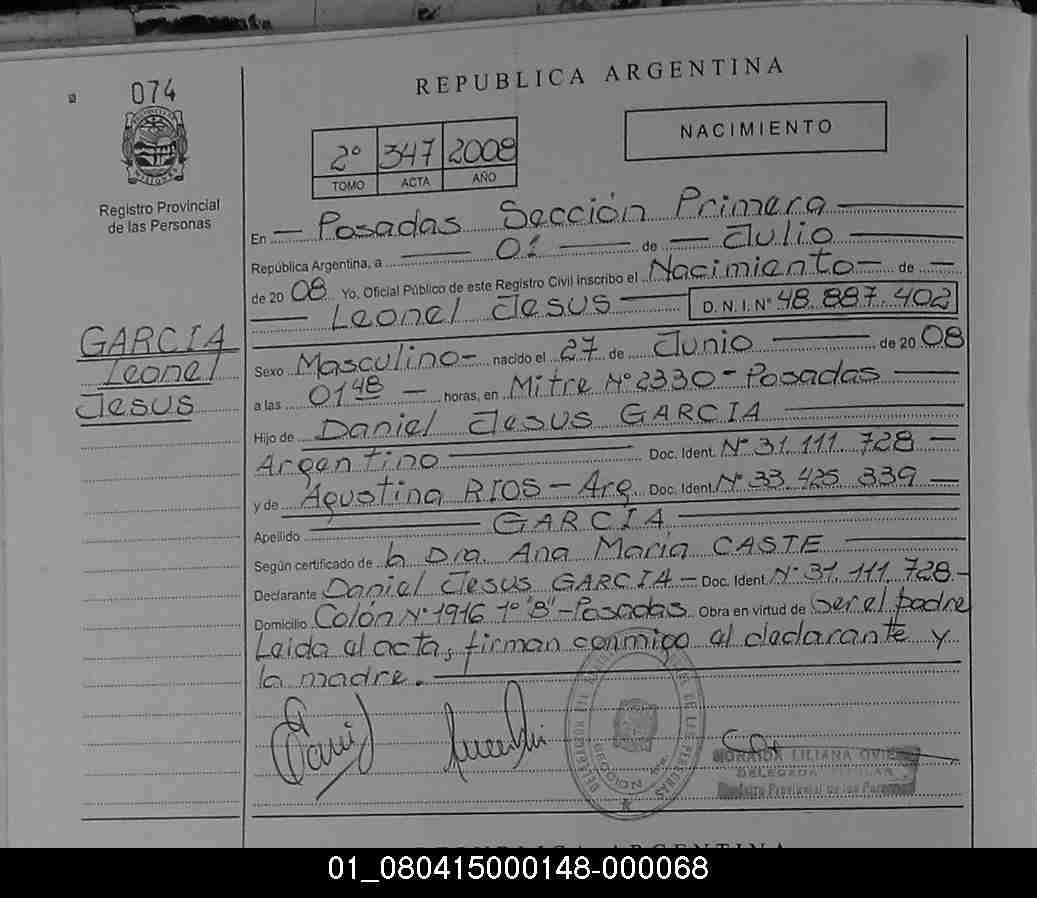 074
Registro Provincial
de las Personas
GARCIA
Leonel
Jesus
REPUBLICA ARGENTINA
NACIMIENTO
2º 347 2008
TOMO ACTA AÑO
En — Posadas Sección Primera
República Argentina, a — 01 — de — Julio
de 20 08 Yo, Oficial Público de este Registro Civil inscribo el Nacimiento — de —
Leonel Jesus — D.N.I. Nº 48.887.402
Sexo Masculino - nacido el 27 de Junio — de 20 08
a las 01 48 — horas, en Mitre Nº 2330 - Posadas
Hijo de Daniel Jesus GARCIA
Argentino — Doc. Ident. Nº 31.111.728 —
y de Agustina RIOS - Arg. Doc. Ident. Nº 33.425.339 —
Apellido — GARCÍA
Según certificado de la Dra. Ana María CASTE
Declarante Daniel Jesus GARCIA - Doc. Ident. Nº 31.111.728 -
Domicilio Colón Nº 1916 1º "B" - Posadas Obra en virtud de ser el padre
Leida el acta, firman conmigo el declarante y
la madre.
LILIANA
Registro Provincial de las Personas
REPUBLICA ARGENTINA
01_080415000148-000068